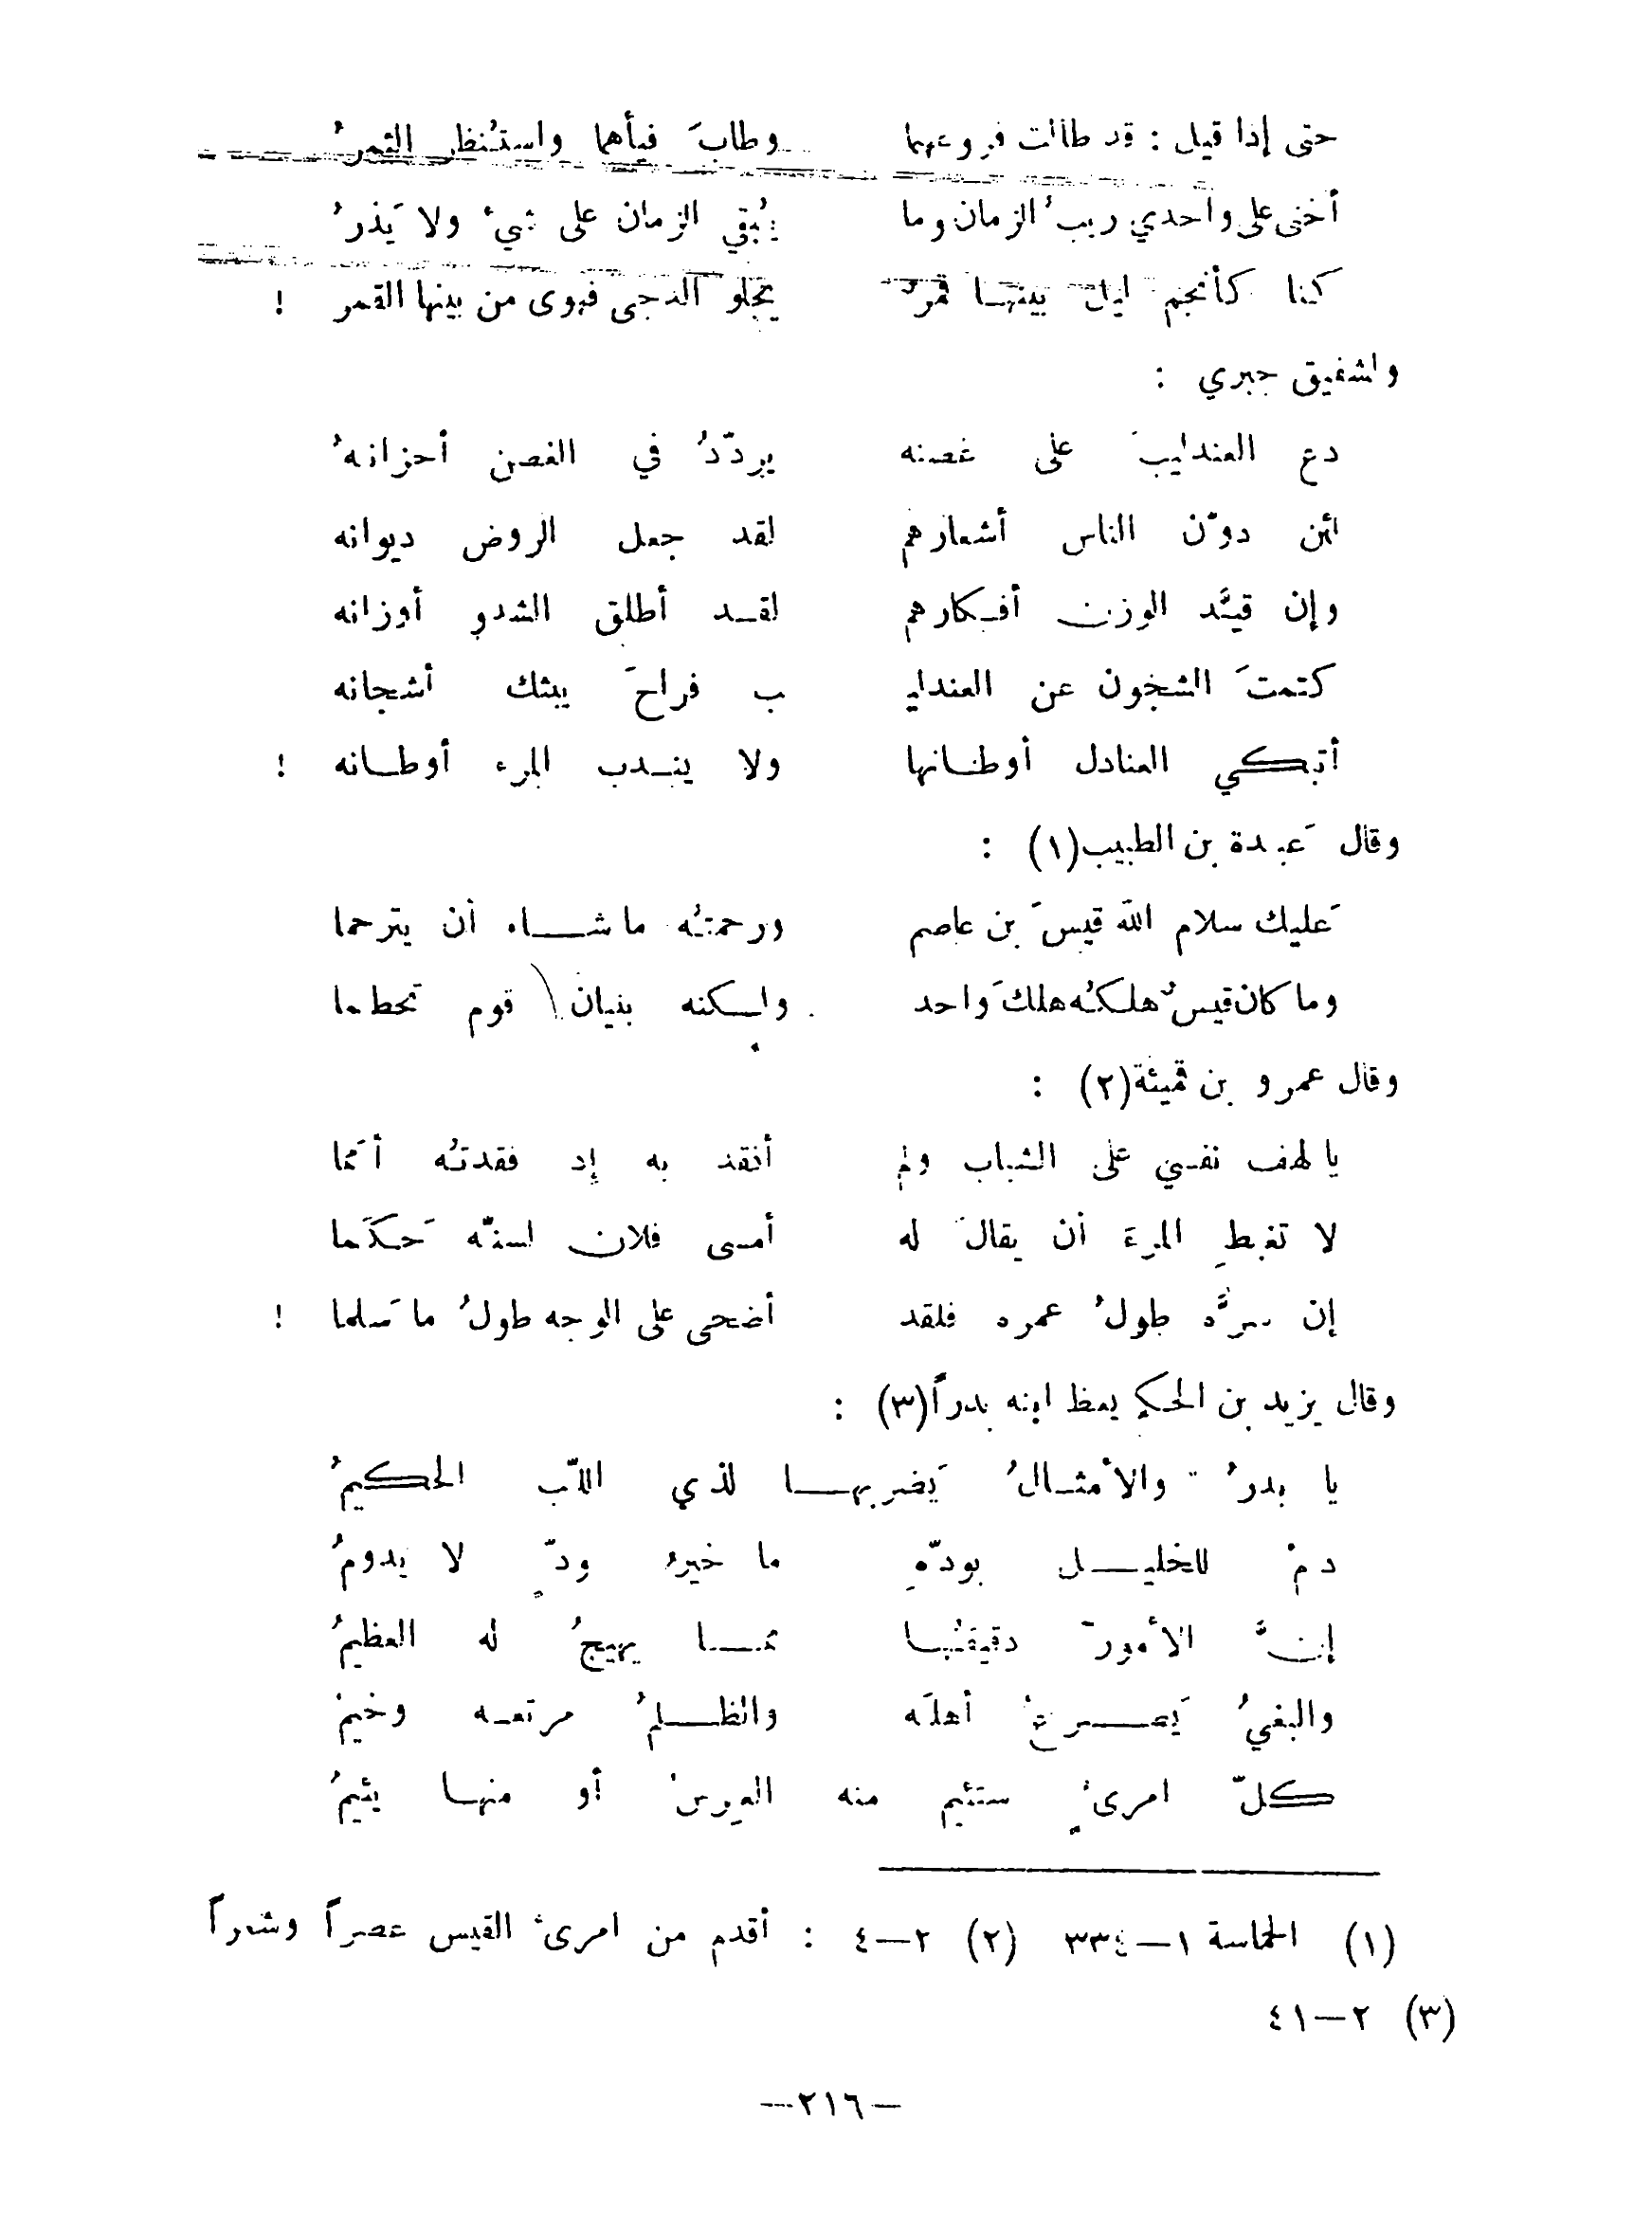 حتى إذا قيل : قد طالت فروعها وطابَ فيأهما واستُنظر الثمرُ
أخنى على واحدي ريبُ الزمان وما يُبقي الزمان على شيء ولا يَذرُ
كنا كأنجم ليل بينهـا قمرٌ يجلو الدجى فهوى من بينها القمر !
ولشفيق جبري :
دع العندليبَ على غصنه يردّدُ في الغصن أحزانهُ
لئن دوّن الناس أشعارهم لقد جعل الروض ديوانه
وإن قيَّد الوزن أفكارهم لقد أطلق الشدو أوزانه
كتمتَ الشجون عن العندليـ ب فراحَ يبثك أشجانه
أتبكي العنادل أوطانها ولا يندب المرء أوطانه !
وقال عَبدة بن الطبيب(١) :
عَليك سلام الله قيسَ بن عاصم ورحمتُه ما شاء أن يترحما
وما كان قيسٌ هلكُه هلكَ واحد ولكنه بنيان قوم تحطما
وقال عمرو بن قميئة(٢) :
يا لهف نفسي على الشباب ولم أفقد به إذ فقدتُه أَمَما
لا تغبطِ المرءَ أن يقالَ له أمسى فلان لسنّه حَكَما
إن سرَّه طولُ عمره فلقد أضحى على الوجه طولُ ما سَلما !
وقال يزيد بن الحكم يعظ ابنه بدراً(٣) :
يا بدرُ والأمثالُ يَضربها لذي اللّب الحكيمُ
دمْ للخليل بودّهِ ما خيرُ ودّ لا يدومُ
إنَّ الأمورَ دقيقُها مما يهيجُ له العظيمُ
والبغيُ يَصرعُ أهلَه والظلمُ مرتعه وخيمُ
كلّ امرئٍ ستئيم منه العرسُ أو منها يئيمُ
(١) الحماسة ١—٣٣٤ (٢) ٢—٤ : أقدم من امرئ القيس عصراً وشعراً
(٣) ٢—٤١
—٢١٦—